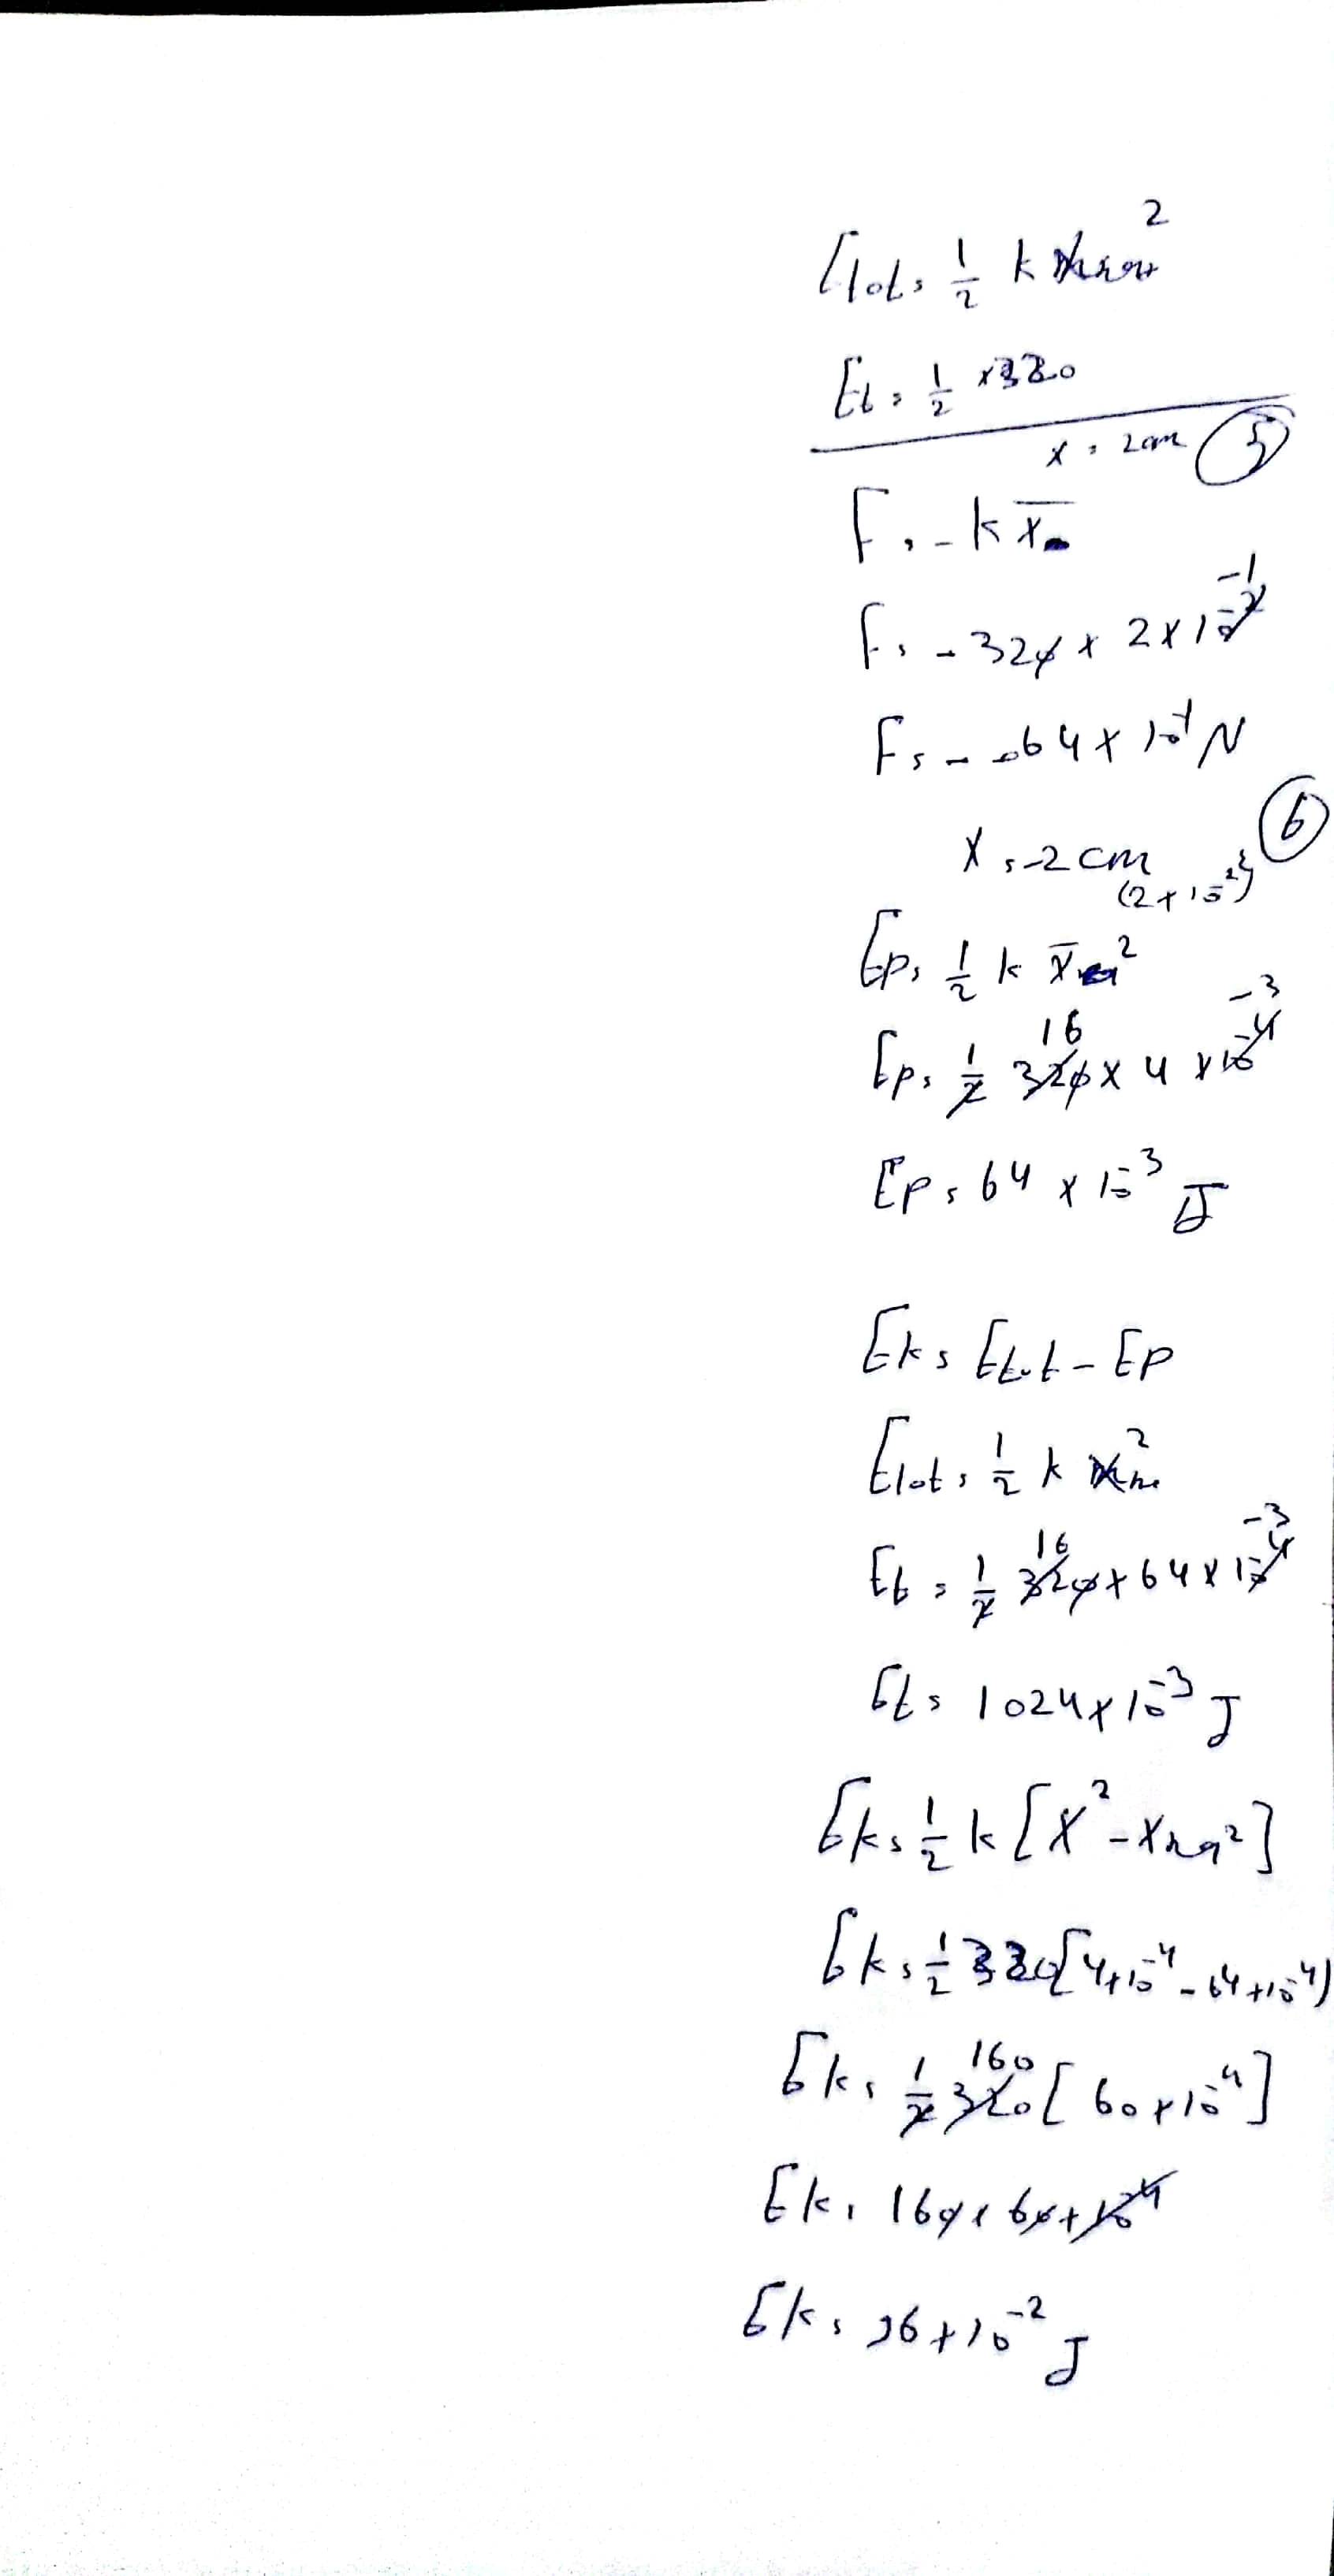 Etot = 1/2 k Xmax²
Et = 1/2 × 320
x = 2cm (5)
F = - k x̄
F = - 320 × 2 × 10⁻² ⁻¹
F = - 64 × 10⁻¹ N
(6)
X = -2 cm
(2 × 10⁻²)²
Ep = 1/2 k x̄²
Ep = 1/2 320 16 × 4 × 10⁻⁴ ⁻³
Ep = 64 × 10⁻³ J
Ek = Etot - Ep
Etot = 1/2 k Xm²
Et = 1/2 320 16 × 64 × 10⁻⁴ ⁻³
Et = 1024 × 10⁻³ J
Ek = 1/2 k [X² - Xm²]
Ek = 1/2 320 [4×10⁻⁴ - 64×10⁻⁴)
Ek = 1/2 320 160 [60×10⁻⁴]
Ek = 160 × 60 × 10⁻⁴
Ek = 96 × 10⁻² J